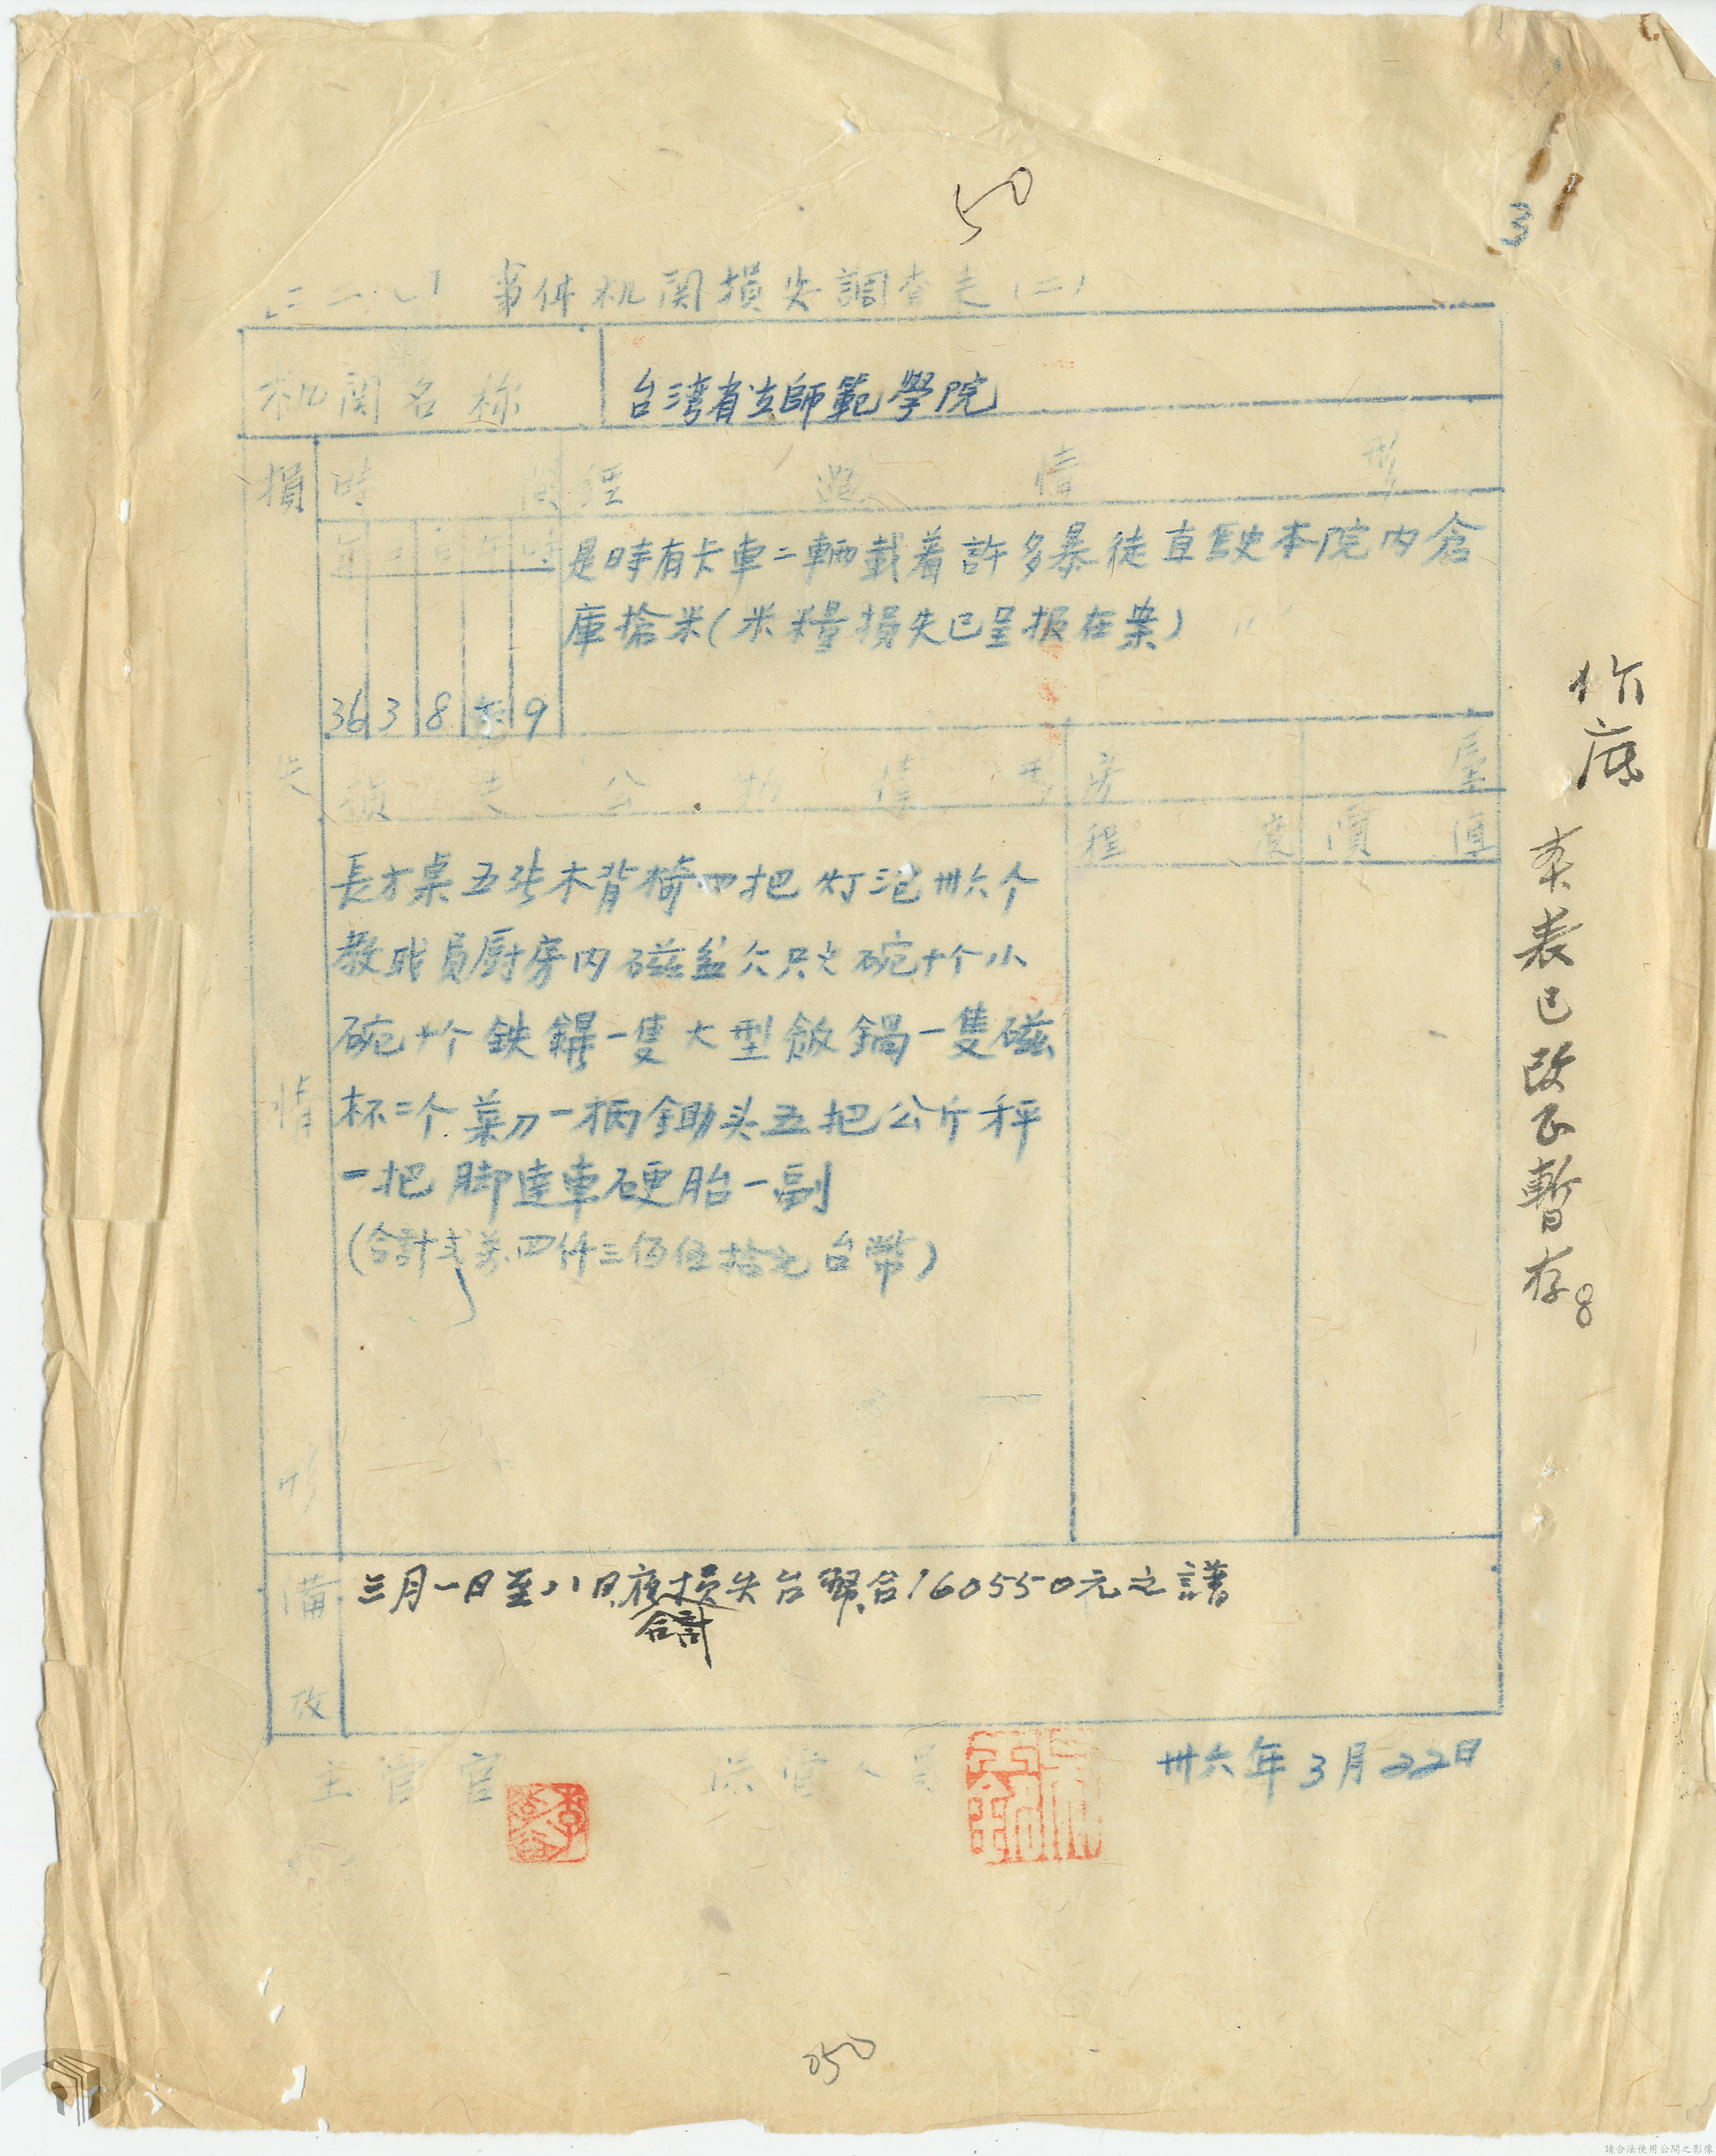 50
3
「二.二八」事件机関損失調查表(二)
机関名称
台湾省立師範學院
損失情形
時間
經過情形
年
月
日
午
時
是時有卡車二輛載着許多暴徒直駛本院内倉
庫搶米(米糧損失已呈报在案)
36 3 8 9
損失公物情形
房屋
程度
價值
長方桌五张木背椅四把灯泡卅六个
教职員厨房内磁盆六只大碗十个小
碗十个鉄鑊一隻大型飯鍋一隻磁
杯二个菜刀一柄鋤头五把公斤秤
一把脚達車硬胎一副
(合計弍萬四仟三佰伍拾元台幣)
備攷
三月一日至八日夜損失台幣合160550元之譜
合計
主管官
卅六年3月22日
作底
本表已改正暫存。
050
請合法使用公開之影像